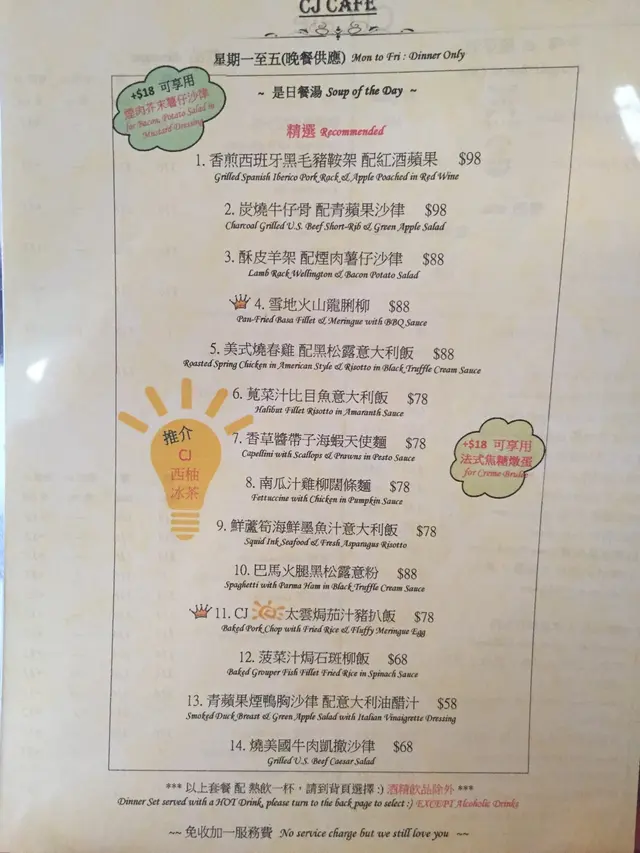 CJ CAFE
星期一至五(晚餐供應) Mon to Fri : Dinner Only
+$18 可享用
煙肉芥末薯仔沙律
for Bacon, Potato Salad in
Mustard Dressing
~ 是日餐湯 Soup of the Day ~
精選 Recommended
1. 香煎西班牙黑毛豬鞍架 配紅酒蘋果 $98
Grilled Spanish Iberico Pork Rack & Apple Poached in Red Wine
2. 炭燒牛仔骨 配青蘋果沙律 $98
Charcoal Grilled U.S. Beef Short-Rib & Green Apple Salad
3. 酥皮羊架 配煙肉薯仔沙律 $88
Lamb Rack Wellington & Bacon Potato Salad
4. 雪地火山龍脷柳 $88
Pan-Fried Basa Fillet & Meringue with BBQ Sauce
5. 美式燒春雞 配黑松露意大利飯 $88
Roasted Spring Chicken in American Style & Risotto in Black Truffle Cream Sauce
6. 莧菜汁比目魚意大利飯 $78
Halibut Fillet Risotto in Amaranth Sauce
7. 香草醬帶子海蝦天使麵 $78
Capellini with Scallops & Prawns in Pesto Sauce
8. 南瓜汁雞柳闊條麵 $78
Fettuccine with Chicken in Pumpkin Sauce
9. 鮮蘆筍海鮮墨魚汁意大利飯 $78
Squid Ink Seafood & Fresh Asparagus Risotto
10. 巴馬火腿黑松露意粉 $88
Spaghetti with Parma Ham in Black Truffle Cream Sauce
11. CJ 太雲焗茄汁豬扒飯 $78
Baked Pork Chop with Fried Rice & Fluffy Meringue Egg
12. 菠菜汁焗石斑柳飯 $68
Baked Grouper Fish Fillet Fried Rice in Spinach Sauce
13. 青蘋果煙鴨胸沙律 配意大利油醋汁 $58
Smoked Duck Breast & Green Apple Salad with Italian Vinaigrette Dressing
14. 燒美國牛肉凱撒沙律 $68
Grilled U.S. Beef Caesar Salad
推介
CJ
西柚
冰茶
+$18 可享用
法式焦糖燉蛋
for Creme Brulee
*** 以上套餐 配 熱飲一杯，請到背頁選擇 :) 酒精飲品除外 ***
Dinner Set served with a HOT Drink, please turn to the back page to select :) EXCEPT Alcoholic Drinks
~~ 免收加一服務費 No service charge but we still love you ~~